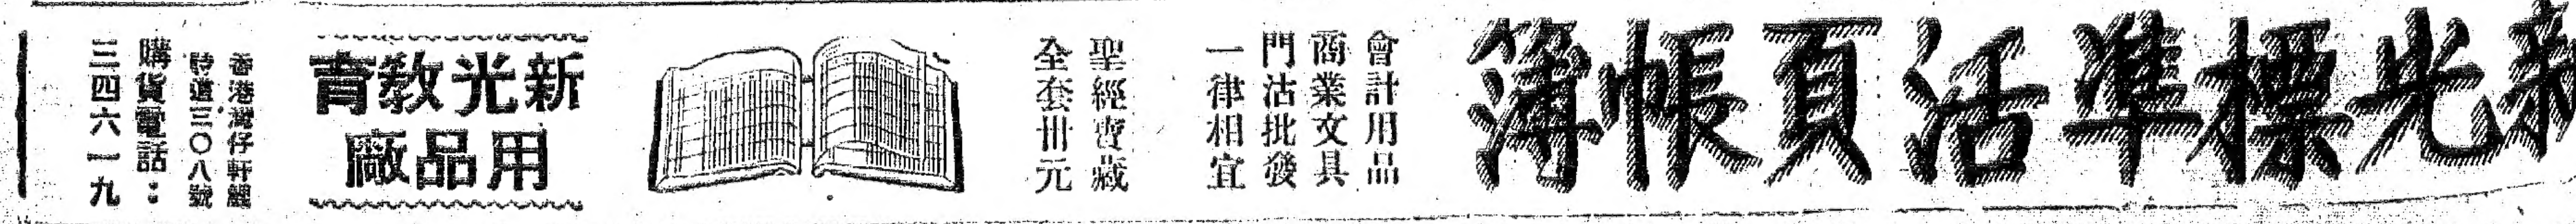 新光標準活頁帳簿
會計用品
商業文具
門沽批發
一律相宜
聖經寶藏
全套卅元
新光教育
用品廠
香港灣仔軒鯉
詩道三〇八號
購貨電話：
三四六一九